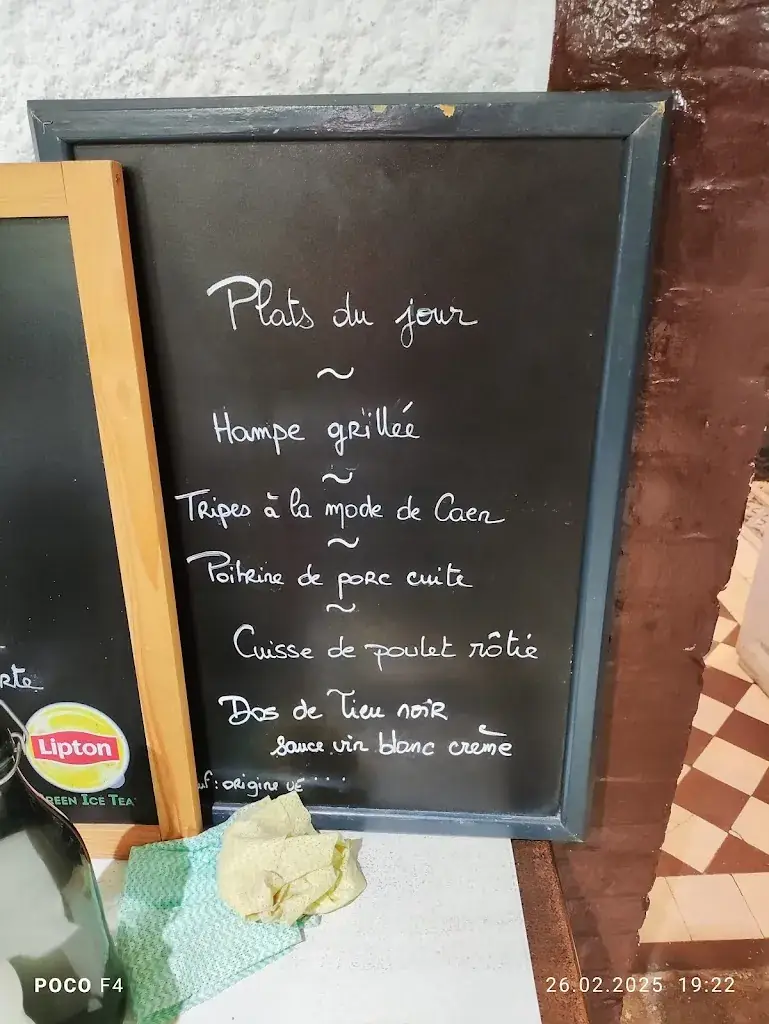 Plats du jour
~
Hampe grillée
~
Tripes à la mode de Caen
~
Poitrine de porc cuite
~
Cuisse de poulet rôtie
Dos de lieu noir
sauce vin blanc crème
origine UE
Lipton
GREEN ICE TEA
POCO F4
26.02.2025 19:22